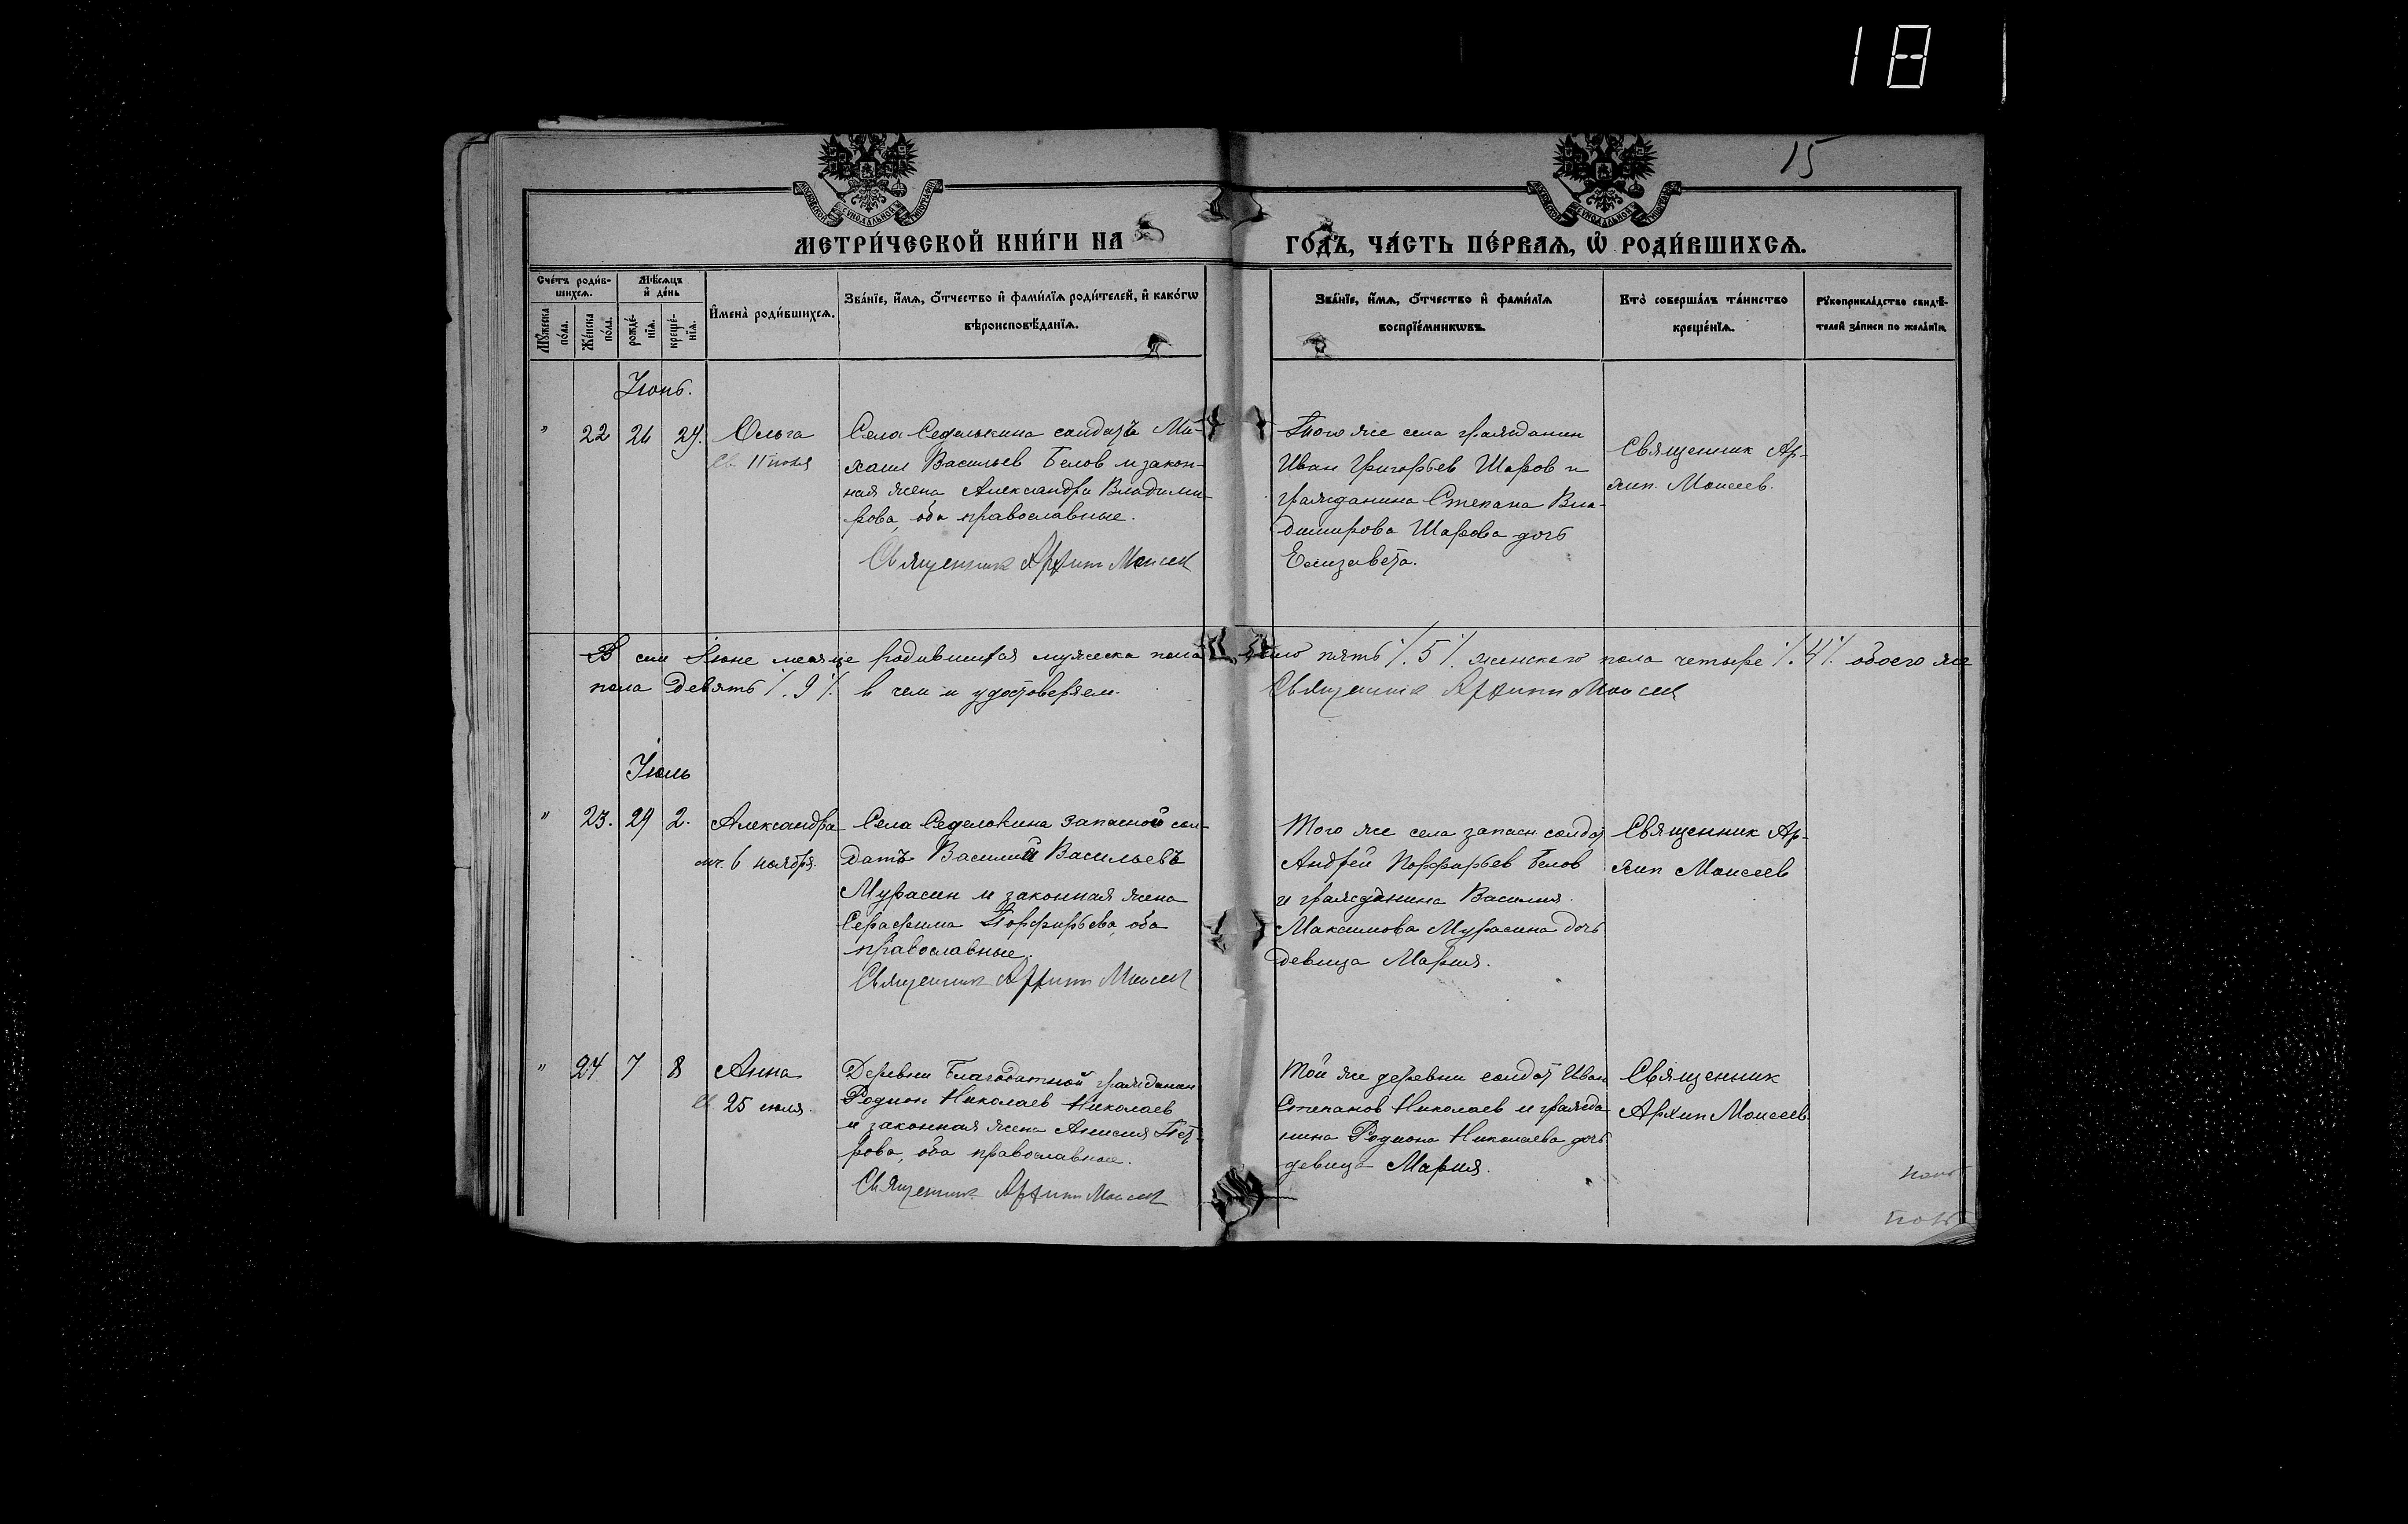 18
15
МОСКОВСКОЙ СѴНОДАЛЬНОЙ ТИПОГРАФІИ
МОСКОВСКОЙ СѴНОДАЛЬНОЙ ТИПОГРАФІИ
МЕТРИ́ЧЕСКОЙ КНИ́ГИ НА
ГО́ДЪ, ЧА́СТЬ ПЕ́РВАѦ, Ѡ҆ РОДИ́ВШИХСѦ.
Сче́тъ роди́в-
шихсѧ.
Мѣ́сѧцъ
и҆ де́нь
Мꙋ́жеска
по́ла.
Же́нска
по́ла.
рожде́-
нїѧ.
креще́-
нїѧ.
И҆мена̀ роди́вшихсѧ.
Зва́нїе, и҆́мѧ, ѻ҆́тчество и҆ фами́лїѧ роди́телей, и҆ како́гѡ
вѣроисповѣ́данїѧ.
Зва́нїе, и҆́мѧ, ѻ҆́тчество и҆ фами́лїѧ
воспрїе́мникѡвъ.
Кто̀ соверша́лъ та́инство
креще́нїѧ.
Рꙋкоприкла́дство свидѣ́-
телей за́писи по жела́нїю.
Июнь.
" 22 26 27. Ольга
Св. 11 июля
Села Седелькина солдатъ Ми-
хаил Васильев Белов и закон-
ная жена Александра Владими-
рова, оба православные.
Священник Архип Моисеев
Того же села гражданин
Иван Григорьев Шаров и
гражданина Степана Вла-
димирова Шарова дочь
Елизавета.
Священник Ар-
хип Моисеев.
В сем Июне месяце родившихся мужеска пола было пять ./.5./. женскаго пола четыре ./.4./. обоего же
пола девять ./.9./. в чем и удостоверяем. Священник Архип Моисеев
Июль
" 23. 29 2. Александра
мч. 6 ноября.
Села Седелькина запасной сол-
датъ Василий Васильевъ
Мурасин и законная жена
Серафима Порфирьева, оба
православные.
Священник Архип Моисеев
Того же села запасн. солдат
Андрей Порфирьев Белов
и гражданина Василия
Максимова Мурасина дочь
девица Мария.
Священник Ар-
хип Моисеев
" 24 7 8 Анна
Св. 25 июля.
Деревни Благодатной гражданин
Родион Николаев Николаев
и законная жена Анисия Пет-
рова, оба православные.
Священник Архип Моисеев
Той же деревни солдат Иван
Степанов Николаев и гражда-
нина Родиона Николаева дочь
девица Мария.
Священник
Архип Моисеев